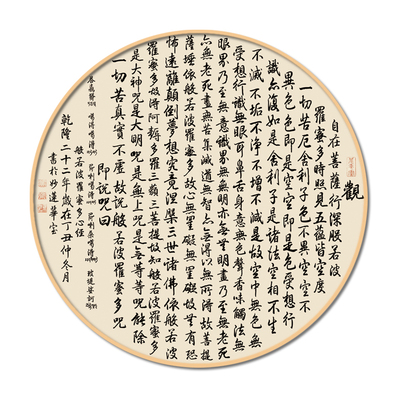 觀
自在菩薩行深般若波
羅蜜多時照見五蘊皆空度
一切苦厄舍利子色不異空空不
異色色即是空空即是色受想行
識亦復如是舍利子是諸法空相不生
不滅不垢不淨不增不減是故空中無色無
受想行識無眼耳鼻舌身意無色聲香味觸法無
眼界乃至無意識界無無明亦無無明盡乃至無老死
亦無老死盡無苦集滅道無智亦無得以無所得故菩提
薩埵依般若波羅蜜多故心無罣礙無罣礙故無有恐
怖遠離顛倒夢想究竟涅槃三世諸佛依般若波
羅蜜多故得阿耨多羅三藐三菩提故知般若波羅蜜多
是大神咒是大明咒是無上咒是無等等咒能除
一切苦真實不虛故說般若波羅蜜多咒
即說咒曰
般若波羅蜜多心經
乾隆二十二年歲在丁丑仲冬月
書於妙蓮華室